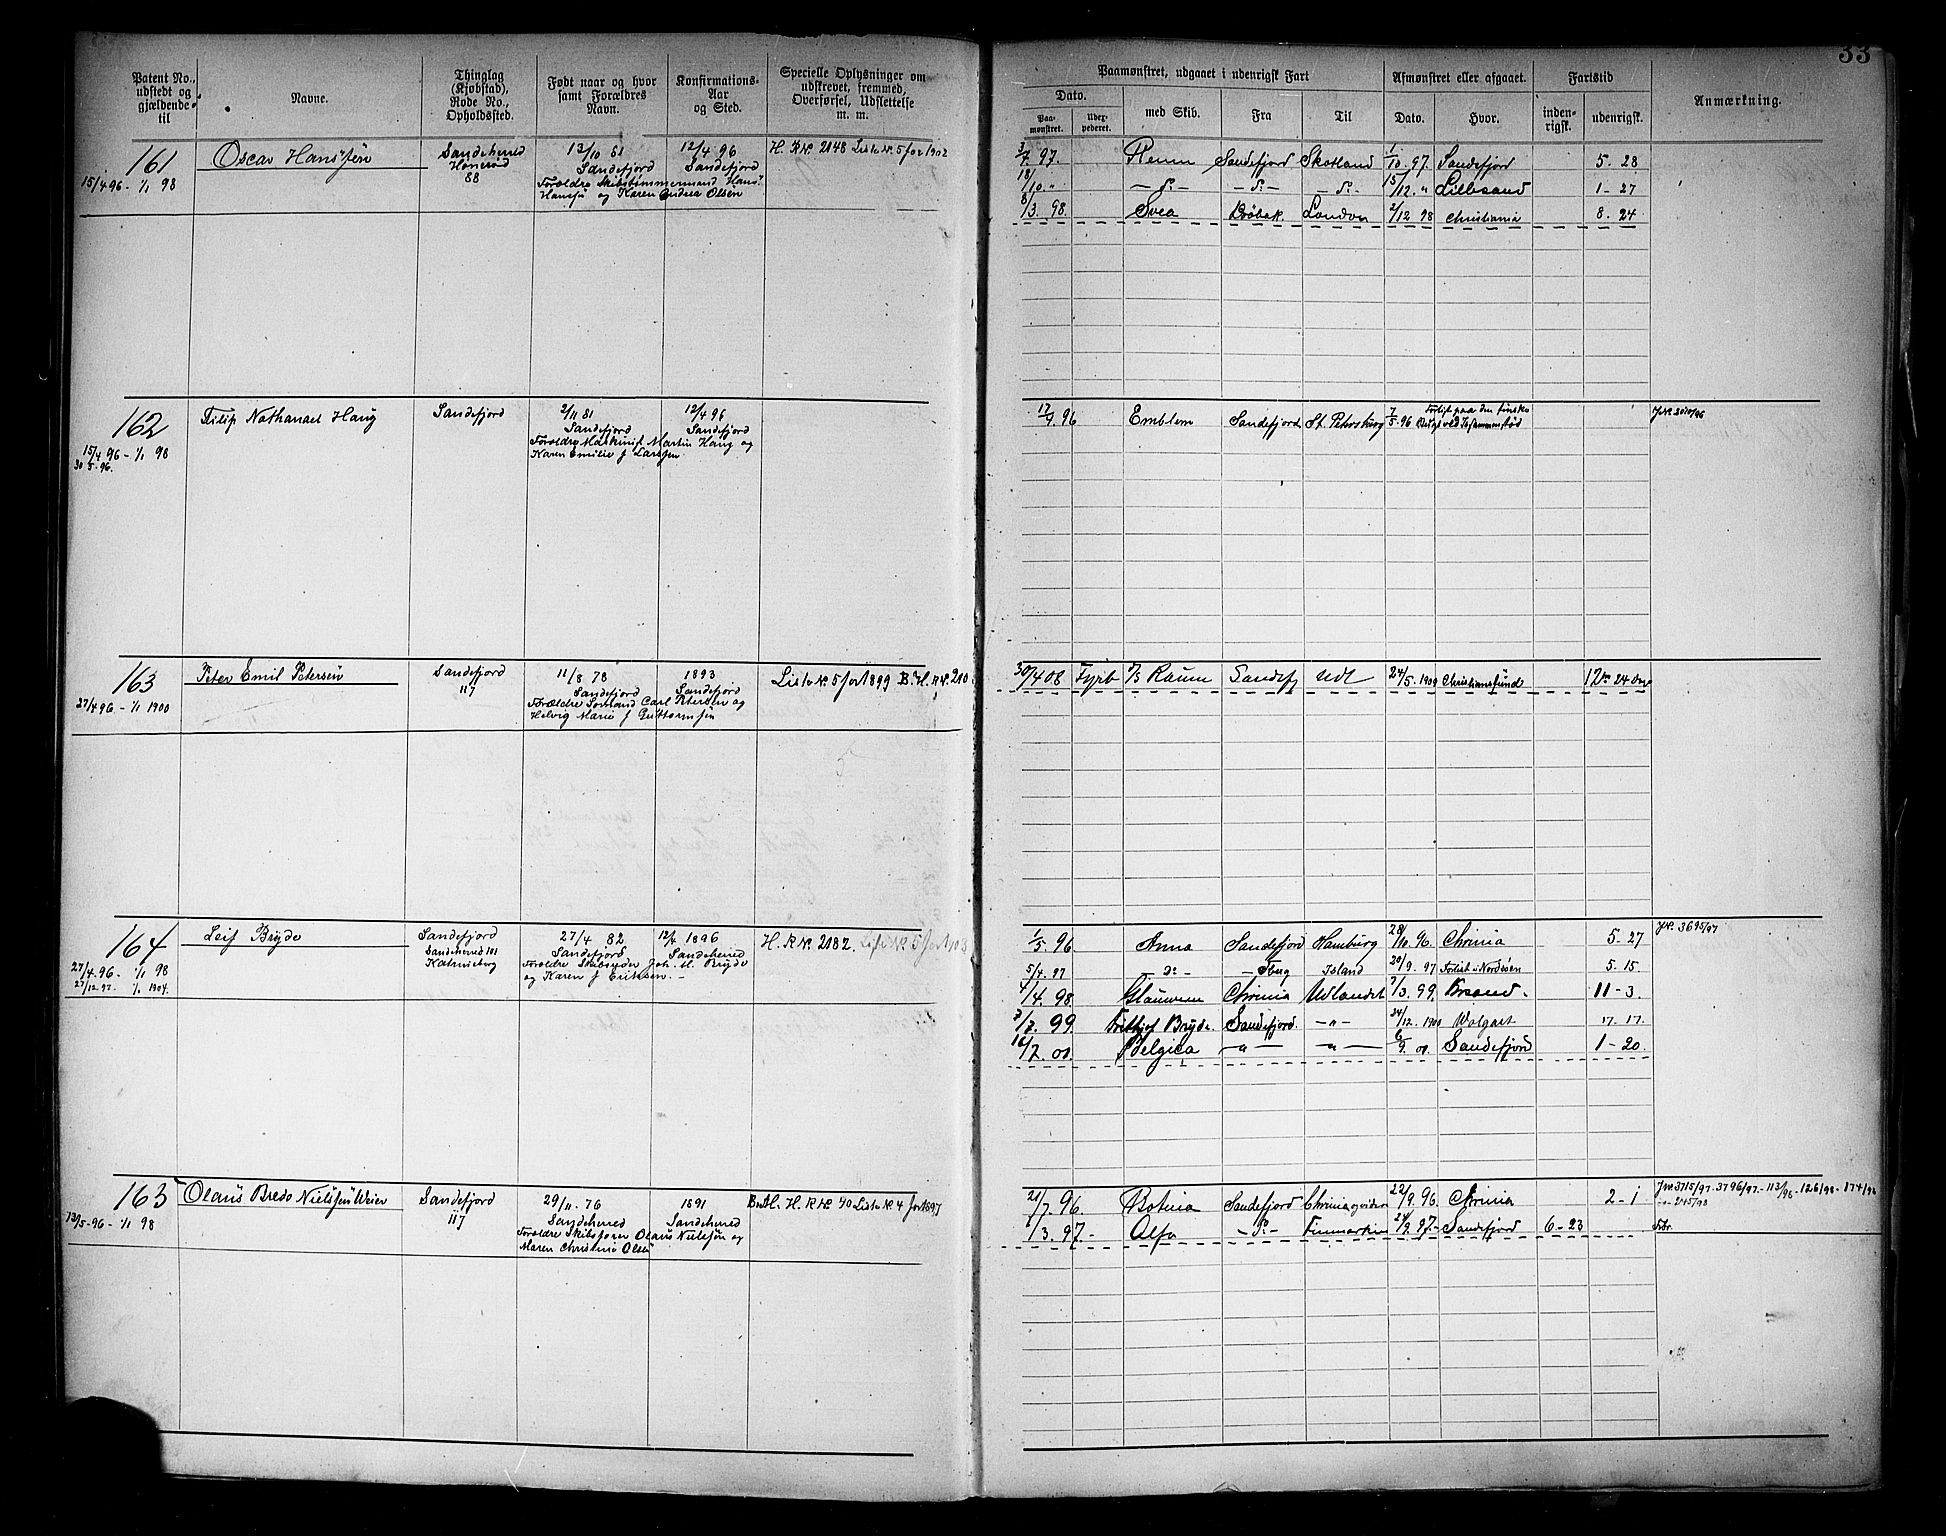 33
Patent No., udstedt og gjældende til
Navne.
Thinglag (Kjøbstad), Rode No., Opholdssted.
Født naar og hvor samt Forældres Navn.
Konfirmations-Aar og Sted.
Specielle Oplysninger om udskrevet, fremmed, Overførsel, Udslettelse m. m.
Paamønstret, udgaaet i udenrigsk Fart
Afmønstret eller afgaaet.
Fartstid
Anmærkning.
Dato.
Paa-mønstret.
Udex-pederet.
med Skib.
Fra
Til
Dato.
Hvor.
inden-rigsk.
udenrigsk.
161
15/4 96 - 1/1 98
Oscar Hanssen
Sandeherred
88
13/10 81
Sandefjord
Forældre Skibstømmermand Hans
Hansen og Karen Andrea Olsen
12/4 96
Sandefjord
H. R. Nr. 2148 Liste Nr. 5 for 1902
3/7 97. Sandefjord Skotland 1/10 97. Sandefjord 5 - 28
18/10 " - D: - - D: - - D: - 15/12 " Lillesand 1 - 27
8/3. 98. Svea Drøbak London 2/12 98 Christiania 8. 24
162
15/4 96 - 1/1 98
30/5 - 96.
Filip Nathanael Haug
Sandefjord
2/11 81
Sandefjord
Forældre Maskinist Martin Haug og
Karen Emilie f Larssen
12/4 96
Sandefjord
17/4. 96 Emblem Sandefjord St. Petersburg 7/5 96 Forlist paa den finske
Bugt ved Sammenstød
163
27/4 96 - 1/1 1900
Peter Emil Petersen
Sandefjord
117
11/8 78
Sandefjord
Forældre Sømand Carl Petersen og
Helvig Marie f Guttormsen
1893
Sandefjord
Liste Nr. 5 for 1899 B. H. R. Nr. 210
30/4 08 Fyrb Raum Sandefj Udl 24/5. 1909 Christianssund
164
27/4. 96 - 1/1 98
27/12. 97. 1/1 1904.
Leif Bryde
Sandefjord
Sandeherred 101
27/4 82
Sandefjord
Forældre Skibsreder Joh. M. Bryde
og Karen f Eriksen. -
12/4 1896
Sandeherred
H. R. Nr. 2182. Liste Nr. 5 for 1903
1/5. 96 Anna Sandefjord Hamburg 28/10 96. Chrinia 5 - 27 J.Nr. 3695/97
5/4. 97 - D: - Island 20/9. 97 Forlist i Nordsøen 5. 15.
1/4. 98. Chrinia Udlandet 7/3. 99. 11 - 3.
7/7. 99. Frithjof Bryde. Sandefjord. - " - 24/12. 1900 Wolgast 17. 17.
16/7. 00. Belgica - " - - " - 6/9. 00. Sandefjord 1 - 20.
165
13/5 - 96 - 1/1 98
Olaus Bredo Nielssen Weier
Sandefjord
117
29/11. 76
Sandeherred
Forældre Skibsfører Olaus Nielsen og
Maren Christine Olsen
1891
Sandeherred
H. R. Nr. 40 Liste Nr. 4 for 1897
21/7. 96. Botnia Sandefjord 22/9. 96. Chrinia 2 - 1
1/3. 97. - Alfa - D: - Finmarken 24/9. 97. - Sandefjord 6 - 23
J.Nr. 3715/97. 3796/97. - 113/98 - 126/98 - 174/98
- " - 245/98